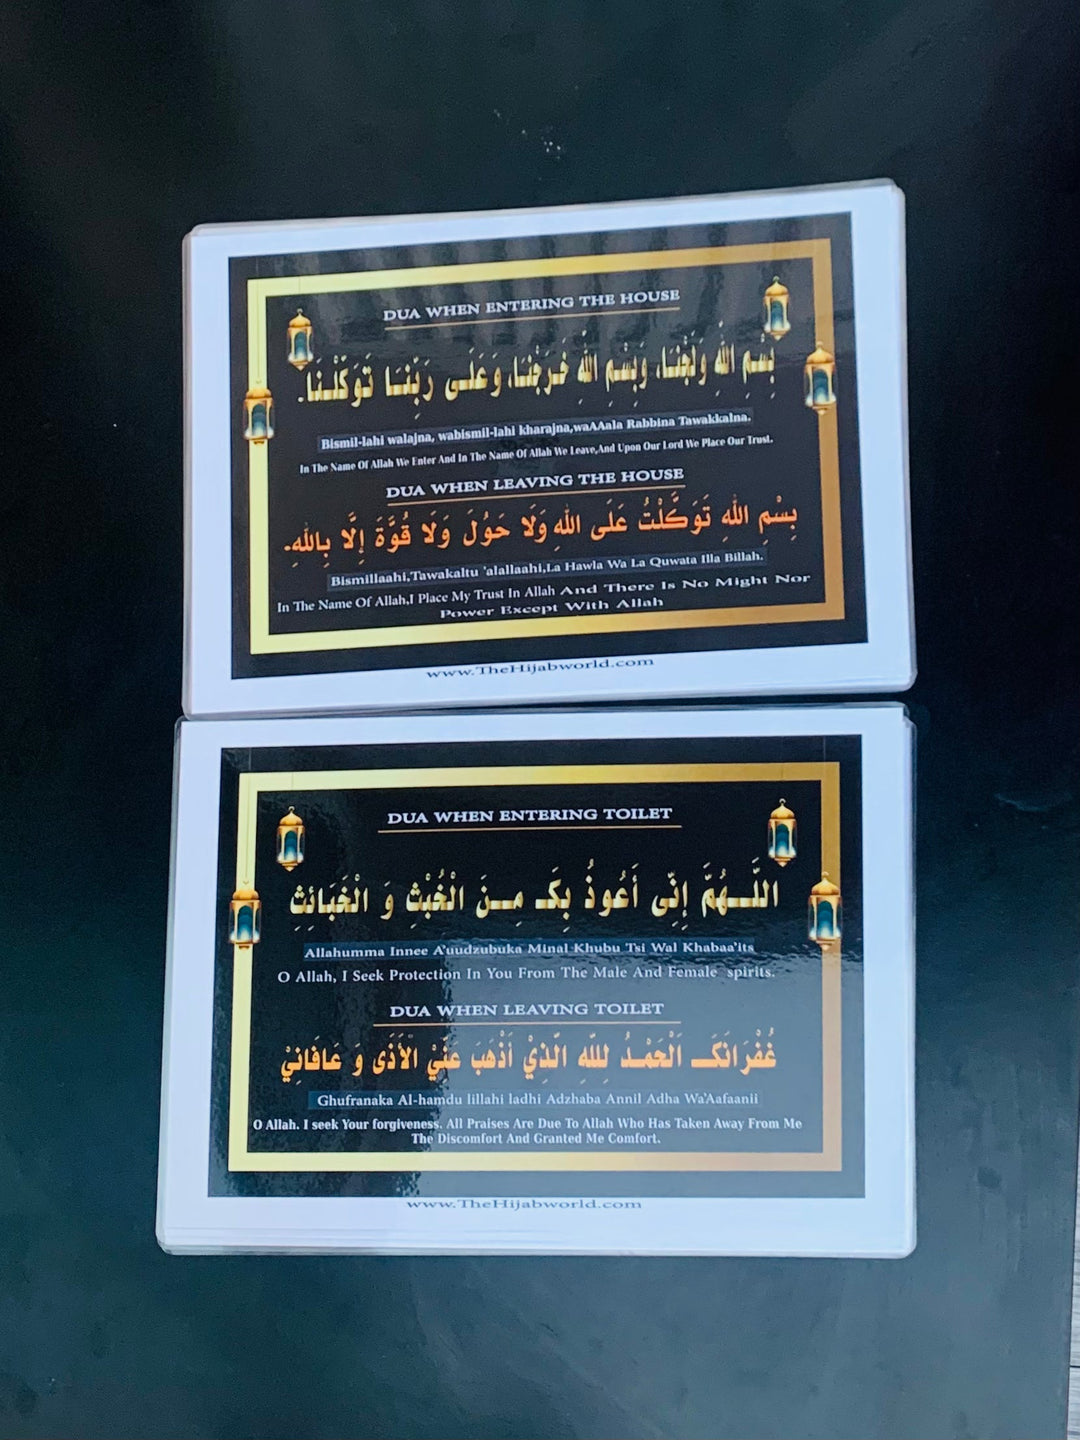 DUA WHEN ENTERING THE HOUSE
بِسْمِ اللهِ وَلَجْنَا، وَبِسْمِ اللهِ خَرَجْنَا، وَعَلَـى رَبِّنَـا تَوَكَّلْـنَا.
Bismil-lahi walajna, wabismil-lahi kharajna,waAAala Rabbina Tawakkalna.
In The Name Of Allah We Enter And In The Name Of Allah We Leave,And Upon Our Lord We Place Our Trust.
DUA WHEN LEAVING THE HOUSE
بِسْمِ اللهِ تَوَكَّلْتُ عَلَى اللهِ وَلَا حَوْلَ وَلَا قُوَّةَ إِلَّا بِاللهِ.
Bismillaahi,Tawakaltu 'alallaahi,La Hawla Wa La Quwata Illa Billah.
In The Name Of Allah,I Place My Trust In Allah And There Is No Might Nor
Power Except With Allah
www.TheHijabworld.com
DUA WHEN ENTERING TOILET
اللّـــهُمَّ إِنِّى أَعُوذُ بِكَـ مِـنَ الْخُبْثِ وَ الْخَبَائِثِ
Allahumma Innee A'uudzubuka Minal Khubu Tsi Wal Khabaa'its
O Allah, I Seek Protection In You From The Male And Female spirits.
DUA WHEN LEAVING TOILET
غُفْرَانَكَـ اَلْحَمْـدُ لِلّٰهِ الَّذِيْ أَذْهَبَ عَنِّيْ الْأَذَى وَ عَافَانِيْ
Ghufranaka Al-hamdu lillahi ladhi Adzhaba Annil Adha Wa'Aafaanii
O Allah. I seek Your forgiveness. All Praises Are Due To Allah Who Has Taken Away From Me
The Discomfort And Granted Me Comfort.
www.TheHijabworld.com